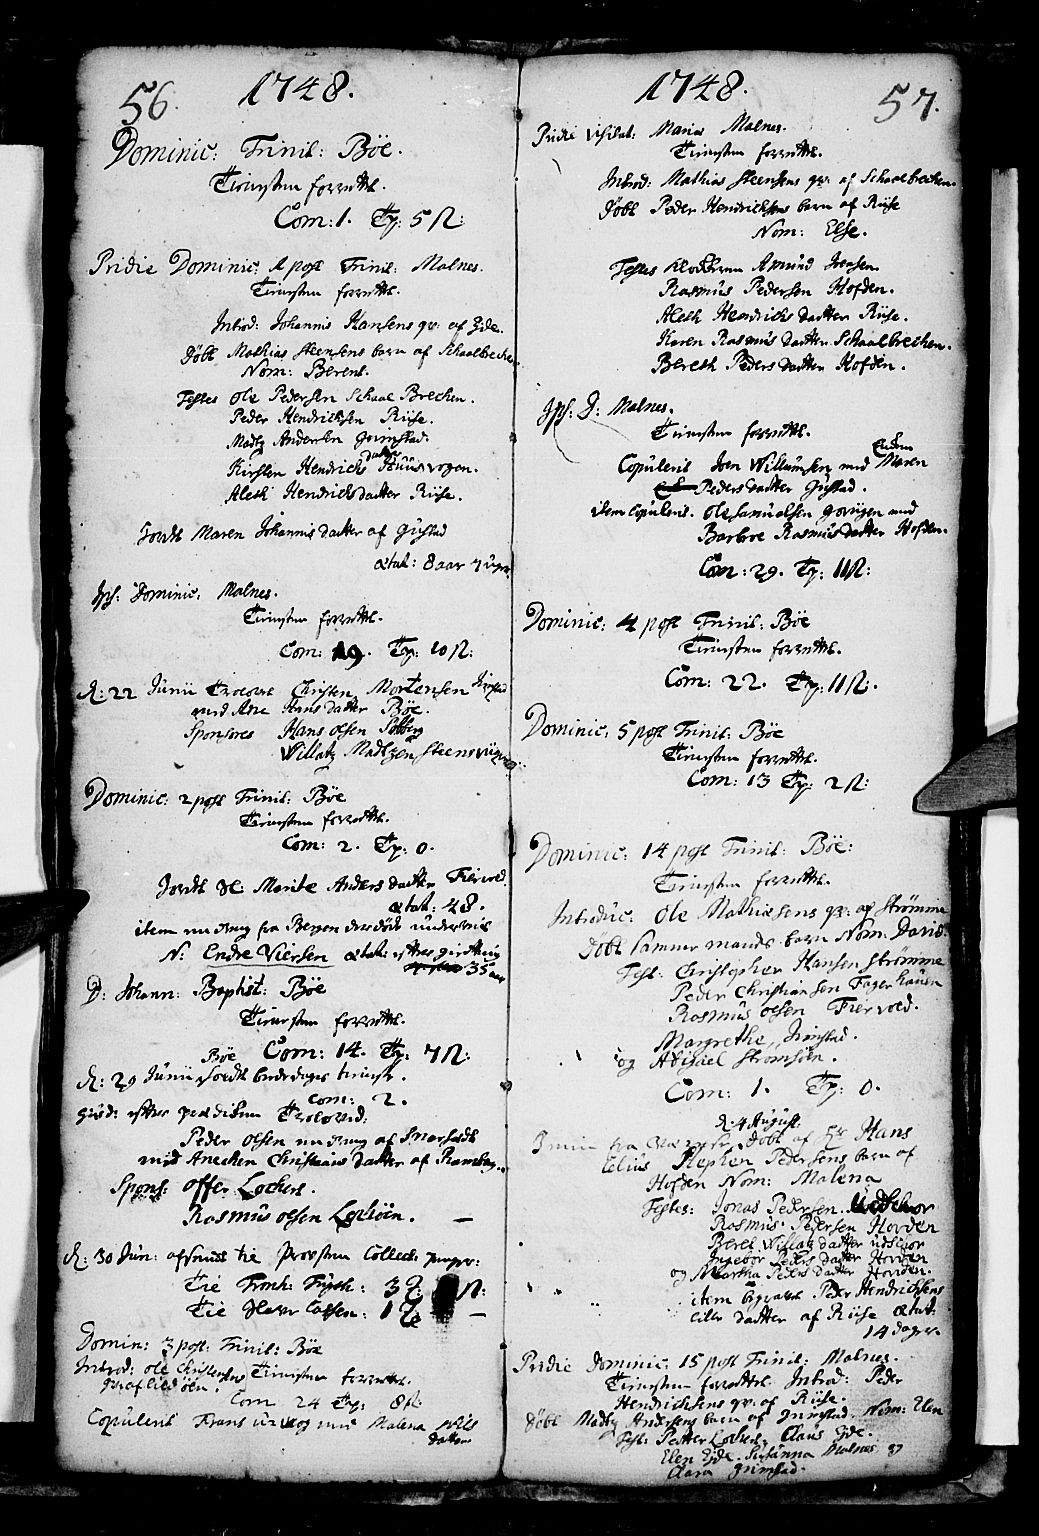 56. 1748.
Dominic: Trinit: Böe.
Tienesten forrettet.
Com: 1. Tp: 5 ß:
Pridie Dominic: 1 post Trinit: Malnes.
Tienesten forrettet.
Introd: Johannis Hansens qv: af Eide.
Döbt Mathias Steensens barn af Schaalbrechen
Nom: Berent.
Testes Ole Pedersen Schaal Brechen.
Peder Hendrichsen Riise.
Madtz Andersen Grimstad.
Kirsten Hendrichs datter Huusvogen.
Aleth Hendrichsdatter Riise.
Jordt Maren Johannis datter af Gustad
ætat: 8 aar 7 uger
Ips: Dominic: Malnes.
Tienesten forrettet.
Com: 19. Tp: 10 ß:
d: 22 Junii Trolovet Christen Mortensen
med Ane Hans datter Böe.
Sponsores Hans Olsen
Willatz Madtzen Steensvogen
Dominic: 2 post Trinit: Böe
Tienesten forrettet.
Com: 2. Tp: 0.
Jordt Sl: Marite Anders datter Fiervold.
ætat: 48.
item en dreng fra Bergen som döde underveis
N: Endre Viersen ætat: efter gisetning
35 aar
D: Johann: Baptist: Böe
Tienesten forrettet.
Com: 14. Tp: 7 ß:
Böe
d: 29 Junii holdt bededags tienest.
Com: 2.
giort: efter prædiken Trolovet:
Peder Olsen en dreng af
med Anechen Christians datter af Ramberg.
Spons: Offer Lochert.
Rasmus Olsen
d: 30 Jun: afsendt til Provsten Collect: penger:
Til Tronh:
Til
Domin: 3 post: Trinit: Böe
Introd: Ole Christensens Tienesten forrettet.
Com 24 Tp: 8 ß:
Copulerit Frans med Malena Nils
datter
1748. 57.
Pridie Visitat: Mariæ Malnes.
Tienesten forrettet.
Introd: Mathias Steensens qv: af Schaalbrechen.
Döbt Peder Hendrichsens barn af Riise
Nom: Else.
Testes Klocheren Amund Joensen
Rasmus Pedersen Hofden.
Aleth Hendrichs datter Riise.
Karen Rasmus datter Schaalbrechen.
Bereth Peders datter Hofden.
Ips: D: Malnes.
Tienesten forrettet.
Copulerit Joen Willumsen med Maren
Peders datter Gustad.
item Copulerit. Ole Samuelsen med
Barbroe Rasmus datter Hofden.
Com: 29. Tp: 11 ß:
Dominic: 4 post Trinit: Böe
Tienesten forrettet.
Com: 22. Tp: 11 ß:.
Dominic: 5 post Trinit: Böe
Tienesten forrettet.
Com: 13 Tp: 2 ß:
Dominic: 14 post Trinit: Böe:
Tienesten forrettet.
Introduc: Ole Mathiesens qv: af Strömme
Döbt Samme mands barn Nom: David.
Test: Christopher Hansen Strömme
Peder Christiansen Fagerhauen
Rasmus Olsen Fiervold.
Margrethe Grimstad.
og Abigael Strömsöen.
Com: 1. Tp: 0.
d. 4 August:
Döbt af Hr Hans
Stephen Pedersens barn af
Hofden Nom: Malena
Testes: Jonas Pedersen. Utschor
Rasmus Pedersen Hovden
Beret Willatz datter Utschor
Ingebor Peders datter Hovden
og Martha Peders datter Hovden.
item begravet Peder Hendrichsens
lille datter af Riise ætat:
14 dager.
Pridie Dominic: 15 post Trinit: Malnes.
Tienesten forrettet. Introd: Peder
Hendrichsens qv: af Riise.
Döbt Madtz Andersens barn af Grimstad. Nom: Elen
Test: Petter Lochert, Claus Eide.
Elen Eide. Susanna Malnes og
Clara Grimstad.